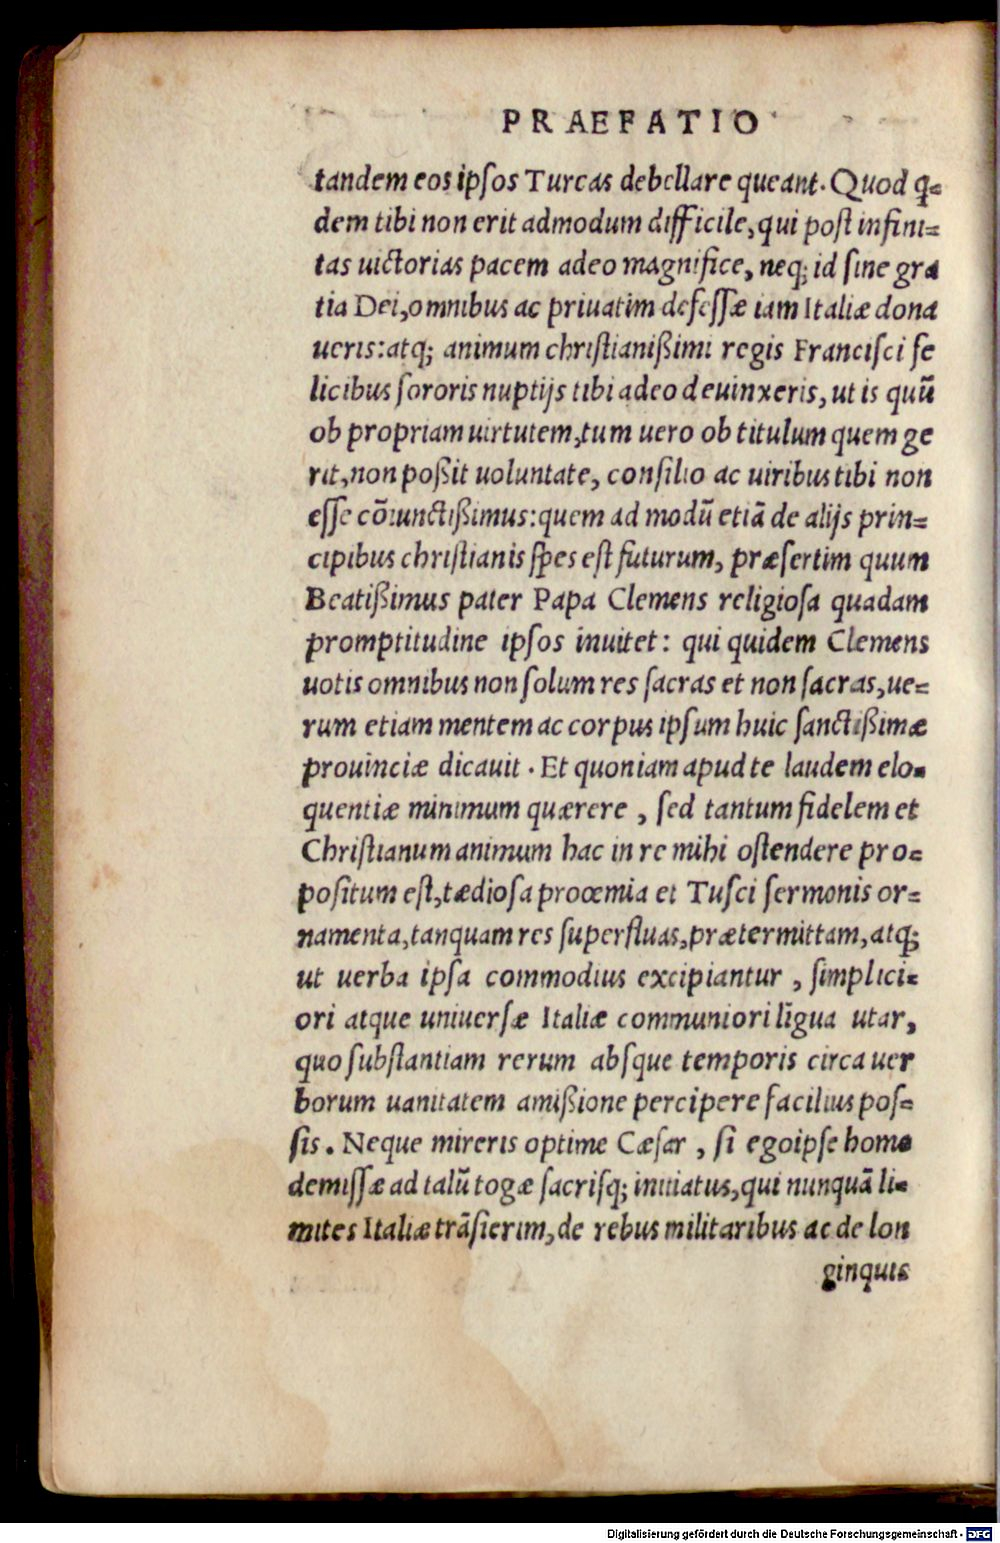 PRAEFATIO
tandem eos ipſos Turcas debellare queant. Quod q̃=
dem tibi non erit admodum difficile, qui poſt infini=
tas uictorias pacem adeo magnifice, neq; id ſine gra
tia Dei, omnibus ac priuatim defeſſæ iam Italiæ dona
ueris: atq; animum chriſtianißimi regis Franciſci fe
licibus ſororis nuptijs tibi adeo deuinxeris, ut is quũ
ob propriam uirtutem, tum uero ob titulum quem ge
rit, non poßit uoluntate, conſilio ac uiribus tibi non
eſſe cõiunctißimus: quem ad modũ etiã de alijs prin=
cipibus chriſtianis ſpes eſt futurum, præſertim quum
Beatißimus pater Papa Clemens religioſa quadam
promptitudine ipſos inuitet: qui quidem Clemens
uotis omnibus non ſolum res ſacras et non ſacras, ue=
rum etiam mentem ac corpus ipſum huic ſanctißimæ
prouinciæ dicauit. Et quoniam apud te laudem elo=
quentiæ minimum quærere, ſed tantum fidelem et
Chriſtianum animum hac in re mihi oſtendere pro=
poſitum eſt, tædioſa proœmia et Tuſci ſermonis or=
namenta, tanquam res ſuperfluas, prætermittam, atq;
ut uerba ipſa commodius excipiantur, ſimplici=
ori atque uniuerſæ Italiæ communiori lĩgua utar,
quo ſubſtantiam rerum abſque temporis circa uer
borum uanitatem amißione percipere facilius poſ=
ſis. Neque mireris optime Cæſar, ſi ego ipſe homo
demiſſæ ad talũ togæ ſacriſq; initiatus, qui nunquã li=
mites Italiæ trãſierim, de rebus militaribus ac de lon
ginquis
Digitalisierung gefördert durch die Deutsche Forschungsgemeinschaft - DFG